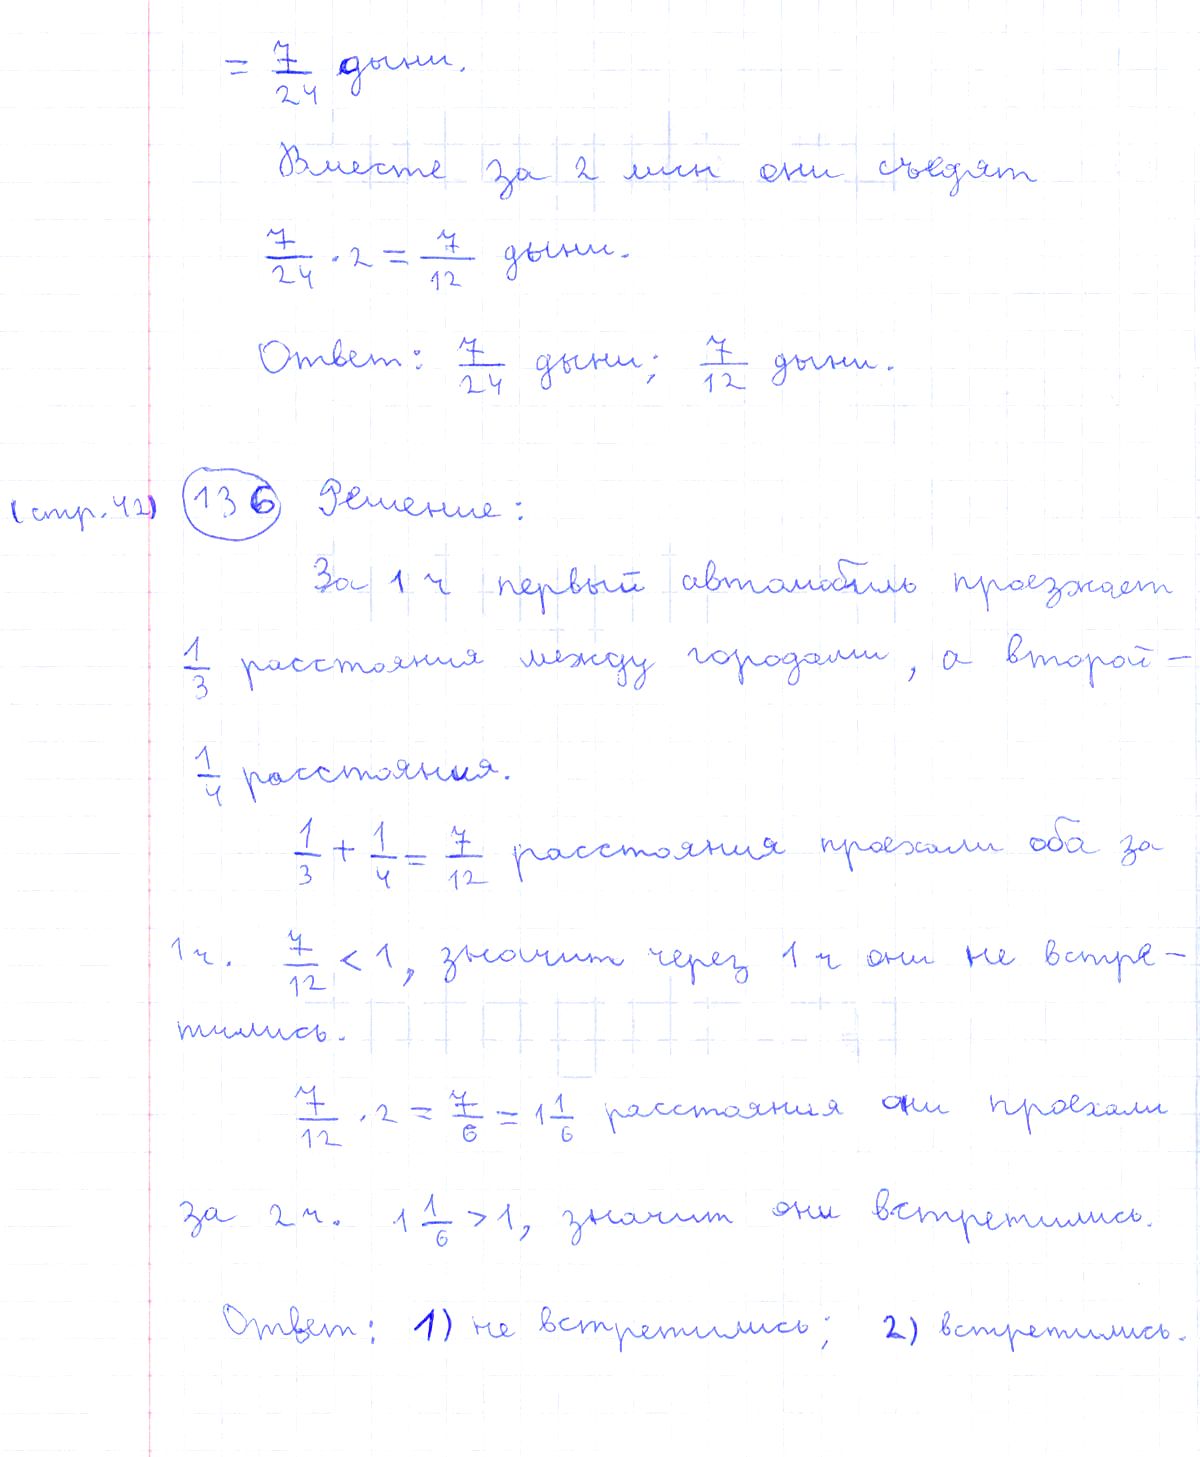 = 7/24 дыни.
Вместе за 2 мин они съедят
7/24 · 2 = 7/12 дыни.
Ответ: 7/24 дыни; 7/12 дыни.
(стр. 42) 136 Решение:
За 1 ч первый автомобиль проезжает
1/3 расстояния между городами, а второй –
1/4 расстояния.
1/3 + 1/4 = 7/12 расстояния проехали оба за
1 ч. 7/12 < 1, значит через 1 ч они не встре–
тились.
7/12 · 2 = 7/6 = 1 1/6 расстояния они проехали
за 2 ч. 1 1/6 > 1, значит они встретились.
Ответ: 1) не встретились; 2) встретились.